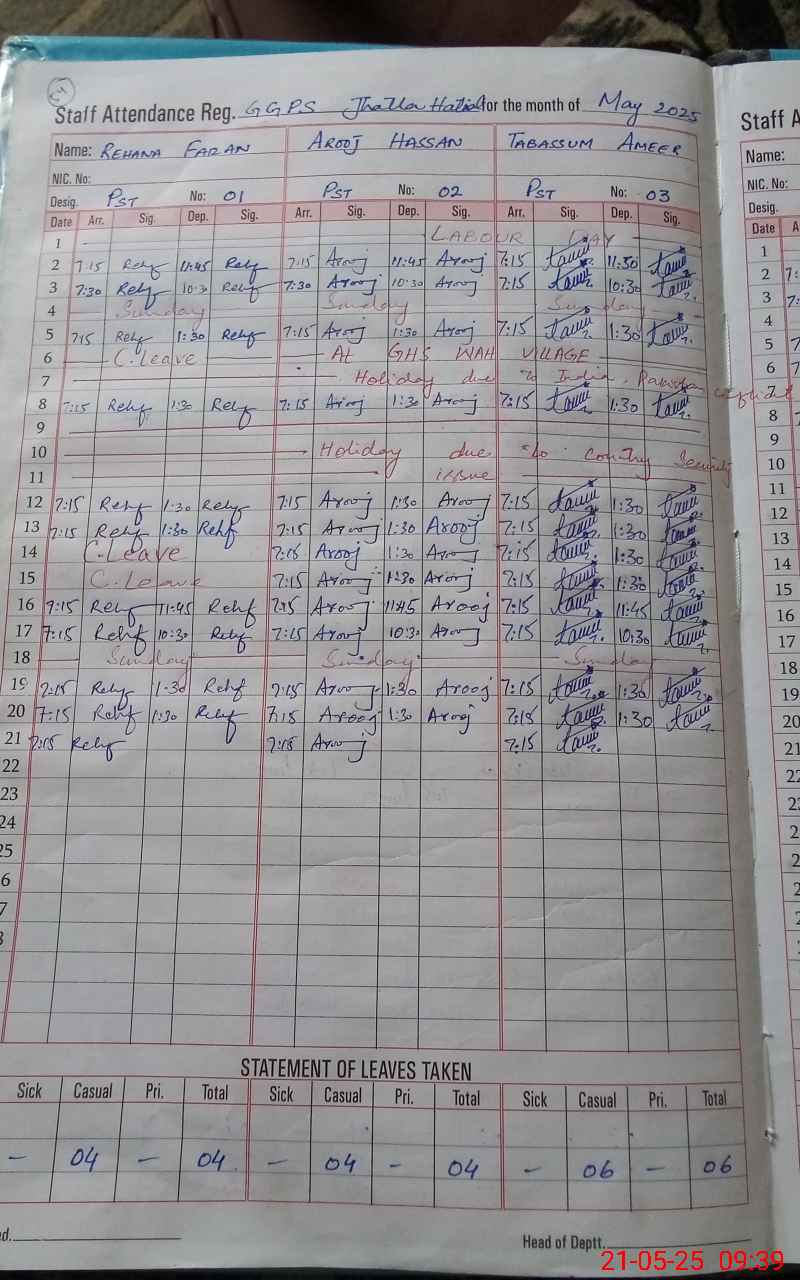 Staff Attendance Reg. GGPS Jhatla Hatial for the month of May 2025
Name: REHANA FAZAN AROOJ HASSAN TABASSUM AMEER
NIC. No:
Desig. PST No: 01 PST No: 02 PST No: 03
Date Arr. Sig. Dep. Sig. Arr. Sig. Dep. Sig. Arr. Sig. Dep. Sig.
1 LABOUR DAY
2 7:15 Rehf 11:45 Rehf 7:15 Arooj 11:45 Arooj 7:15 11:30
3 7:30 Rehf 10:30 Rehf 7:30 Arooj 10:30 Arooj 7:15 10:30
4 Sunday Sunday Sunday
5 7:15 Rehf 1:30 Rehf 7:15 Arooj 1:30 Arooj 7:15 1:30
6 C.Leave At GHS WAH VILLAGE
7 Holiday due to India, Pakistan conflict
8 7:15 Rehf 1:30 Rehf 7:15 Arooj 1:30 Arooj 7:15 1:30
9
10 Holiday due to country Security
11 issue
12 7:15 Rehf 1:30 Rehf 7:15 Arooj 1:30 Arooj 7:15 1:30
13 7:15 Rehf 1:30 Rehf 7:15 Arooj 1:30 Arooj 7:15 1:30
14 C.Leave 7:15 Arooj 1:30 Arooj 7:15 1:30
15 C.Leave 7:15 Arooj 1:30 Arooj 7:15 1:30
16 7:15 Rehf 11:45 Rehf 7:15 Arooj 11:45 Arooj 7:15 11:45
17 7:15 Rehf 10:30 Rehf 7:15 Arooj 10:30 Arooj 7:15 10:30
18 Sunday Sunday Sunday
19 7:15 Rehf 1:30 Rehf 7:15 Arooj 1:30 Arooj 7:15 1:30
20 7:15 Rehf 1:30 Rehf 7:15 Arooj 1:30 Arooj 7:15 1:30
21 7:15 Rehf 7:15 Arooj 7:15
22
23
24
25
6
7
8
STATEMENT OF LEAVES TAKEN
Sick Casual Pri. Total Sick Casual Pri. Total Sick Casual Pri. Total
– 04 – 04 – 04 – 04 – 06 – 06
Head of Deptt.
Staff A
Name:
NIC. No:
Desig.
Date A
1
2 7:
3 7:
4
5 7
6 7
7
8 7
9
10
11
12
13
14
15
16
17
18
19
20
21
21-05-25 09:39